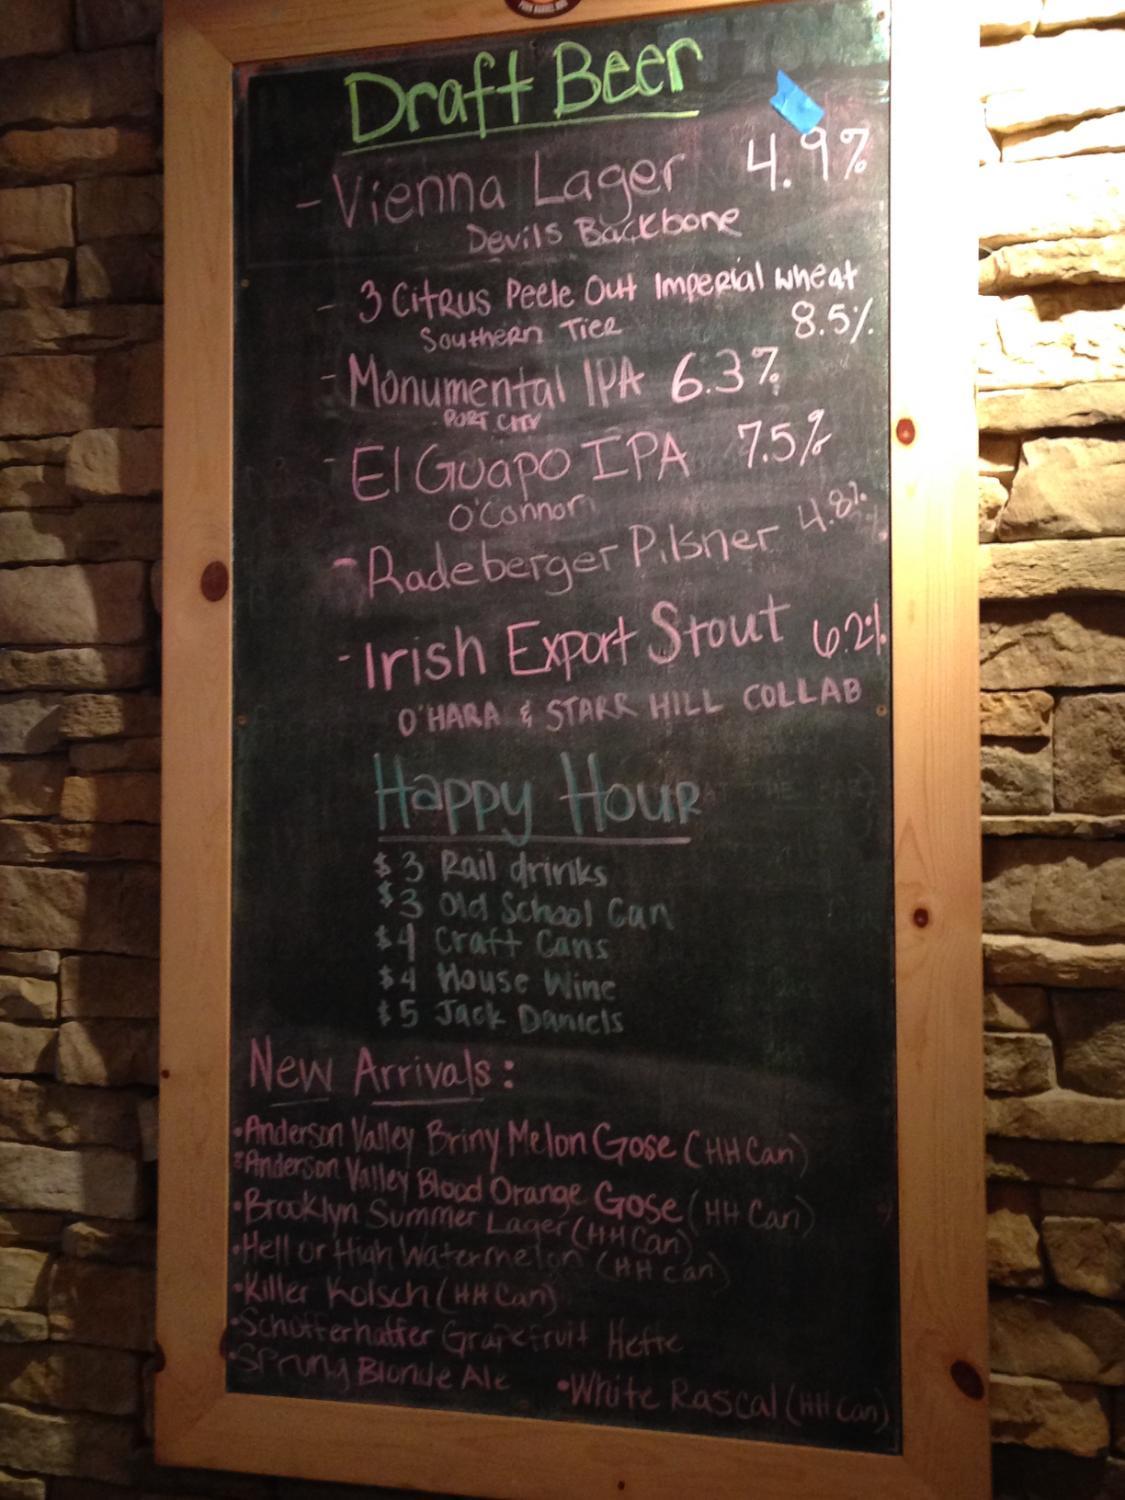 Draft Beer
- Vienna Lager 4.9%
Devils Backbone
- 3 Citrus Peele Out Imperial Wheat
Southern Tier 8.5%
- Monumental IPA 6.3%
PORT CITY
- El Guapo IPA 7.5%
O'Connor
- Radeberger Pilsner 4.8%
- Irish Export Stout 6.2%
O'HARA & STARR HILL COLLAB
Happy Hour
$3 Rail drinks
$3 Old School Can
$4 Craft Cans
$4 House Wine
$5 Jack Daniels
New Arrivals:
•Anderson Valley Briny Melon Gose (HH Can)
•Anderson Valley Blood Orange Gose (HH Can)
•Brooklyn Summer Lager (HH Can)
•Hell or High Watermelon (HH can)
•Killer Kolsch (HH Can)
•Schofferhaffer Grapefruit Hefte
•Sprung Blonde Ale •White Rascal (HH Can)